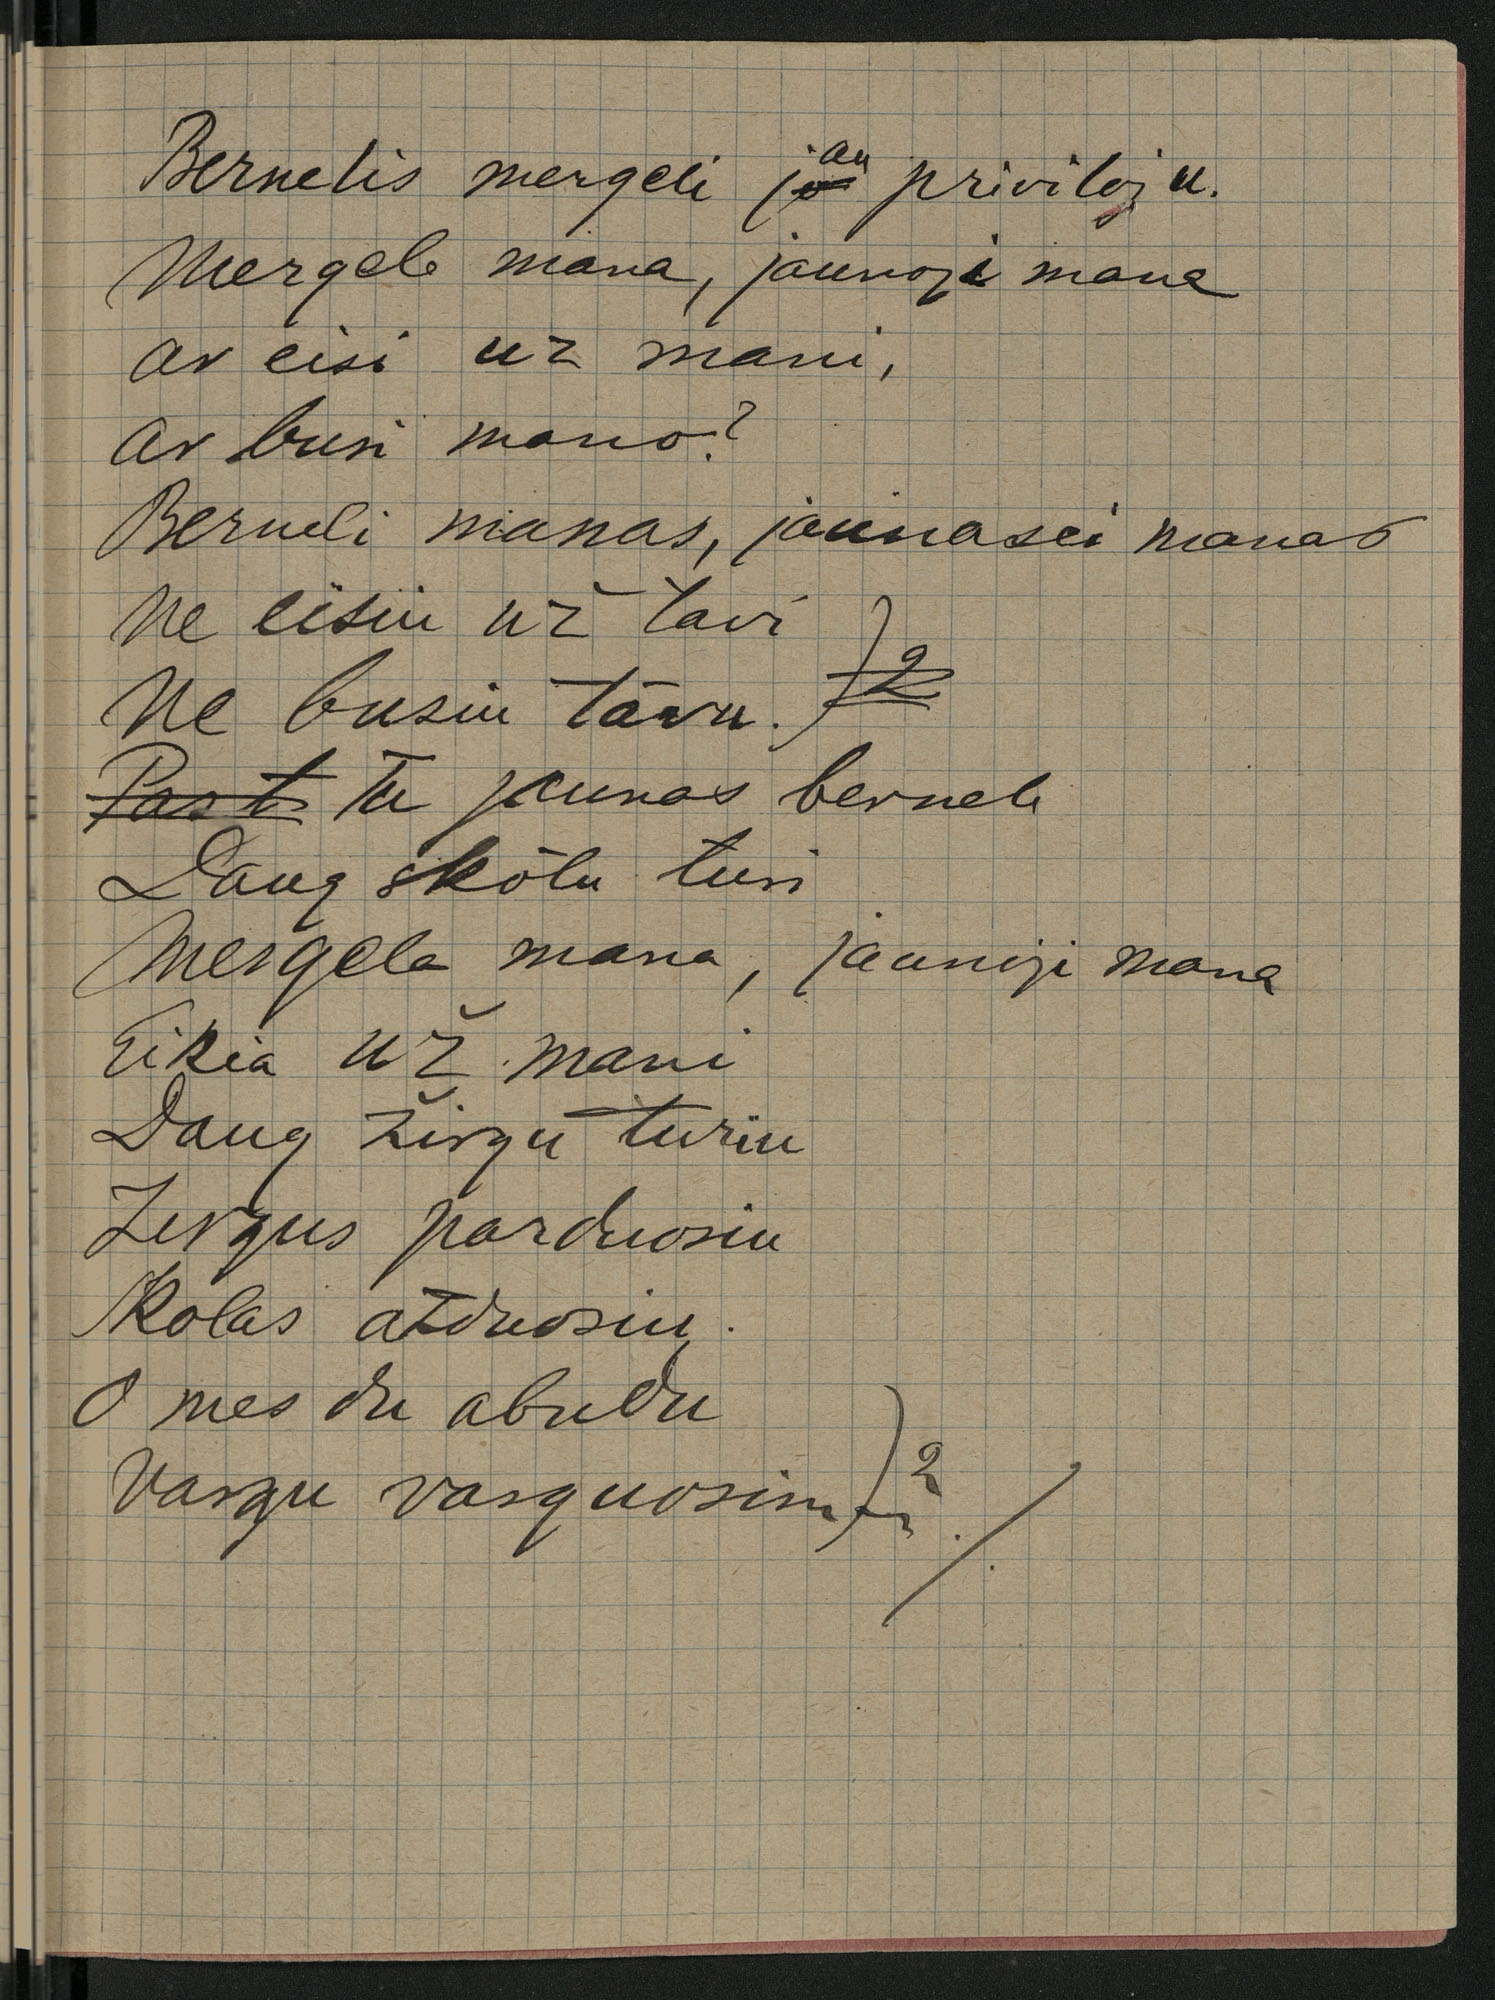 Bernelis mergeli jau priviloju.
Mergele mana, jaunoji mana
ar eisi uz mani,
ar busi mano?
Berneli manas, jaunasei manas
Ne eisiu už tavi
Ne busiu tavu. } 2
Past Tu jaunas bernele
Daug skōlu turi
Mergela mana, jaunoji mana
Eikia už mani
Daug žirgu turiu
Zirgus parduosiu
Skolas atduosiu.
O mes du abudu
Vargu varguosim } 2